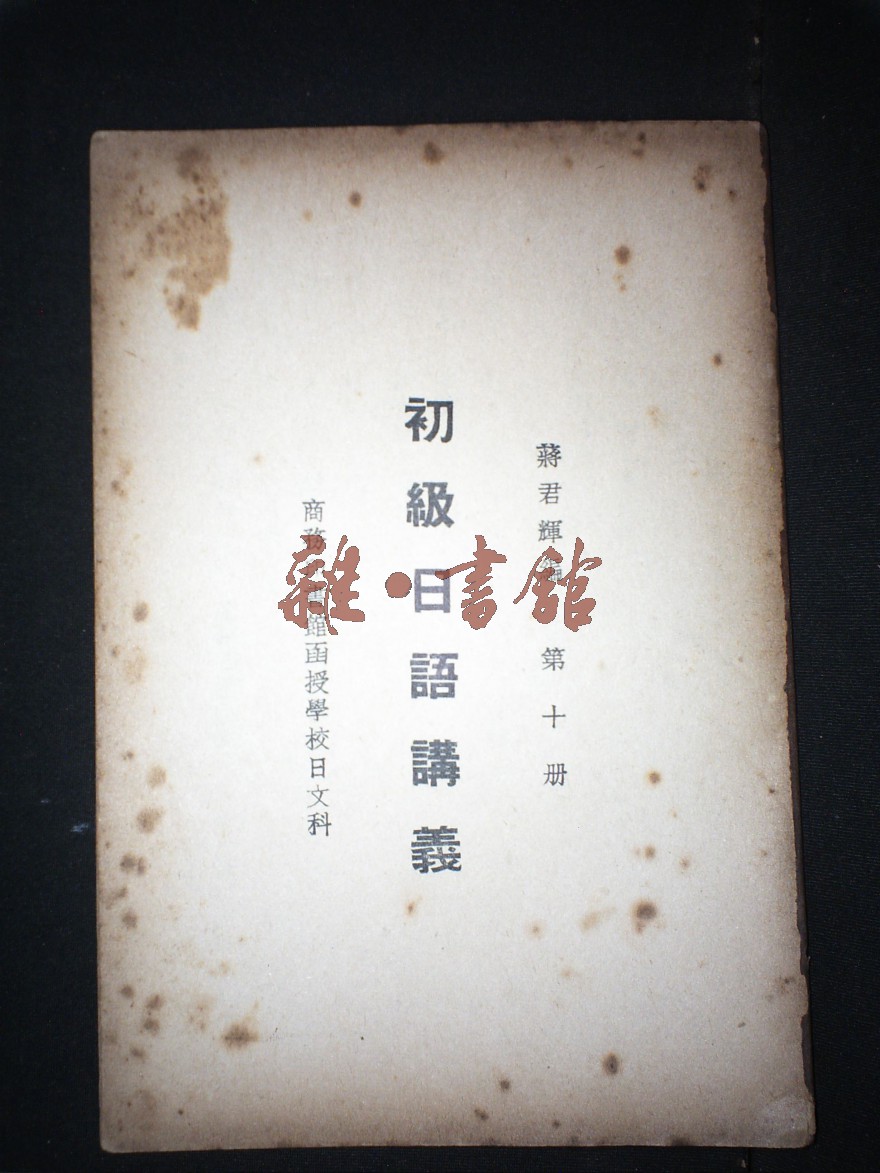 蔣君輝編 第十册
初級日語講義
商務印書館函授學校日文科
雜·書館